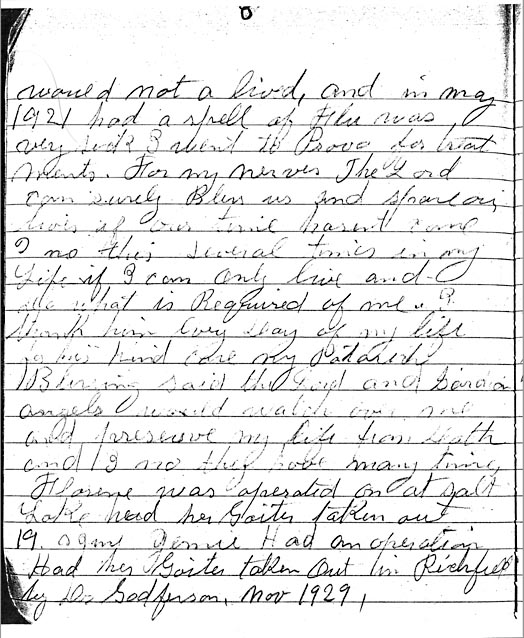 8
would not a lived, and in may
1921 had a spell of Flu was
very sick I went to Provo for treat
ments. For my nerves The Lord
can surely Bless us and spare our
lives if our time havent come
I no this several times in my
Life if I can only live and
do what is Required of me. I
thank him Every day of my life
for his kind care my Patarich
Blessing said the Lord and Gardian
angels would watch over me
and preserve my life from death
and I no they have many times
Florene was operated on at Salt
Lake head her Goiter taken out
19 Had an operation
Had her Goiter taken Out in Richfield
by Dr Godferson, Nov 1929,